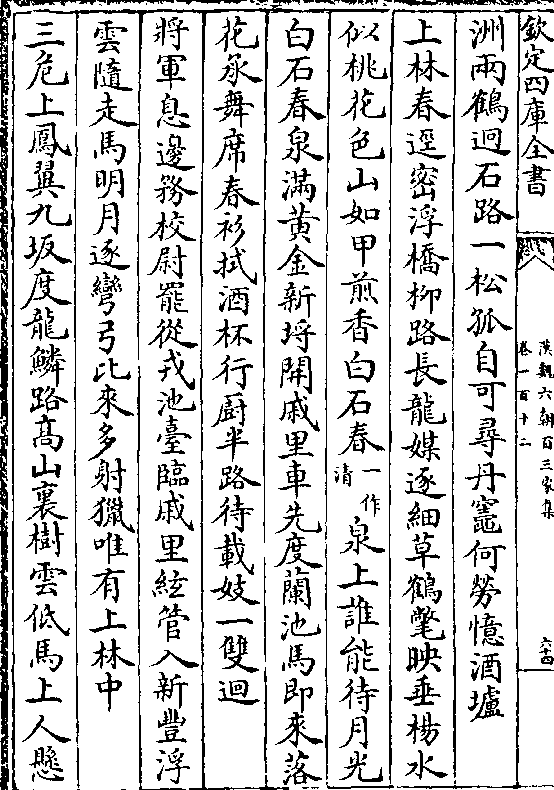 欽定四庫全書
漢魏六朝百三家集
卷一百十二
六十四
洲兩鶴迥石路一松孤自可尋丹竈何勞憶酒壚
上林春逕密浮橋柳路長龍媒逐細草鶴氅映垂楊水
似桃花色山如甲煎香白石春一作清泉上誰能待月光
白石春泉滿黃金新埒開戚里車先度蘭池馬即來落
花承舞席春衫拭酒杯行厨半路待載妓一雙迴
將軍息邊務校尉罷從戎池臺臨戚里絃管入新豐浮
雲隨走馬明月逐彎弓比來多射獵唯有上林中
三危上鳳翼九坂度龍鱗路髙山裏樹雲低馬上人懸